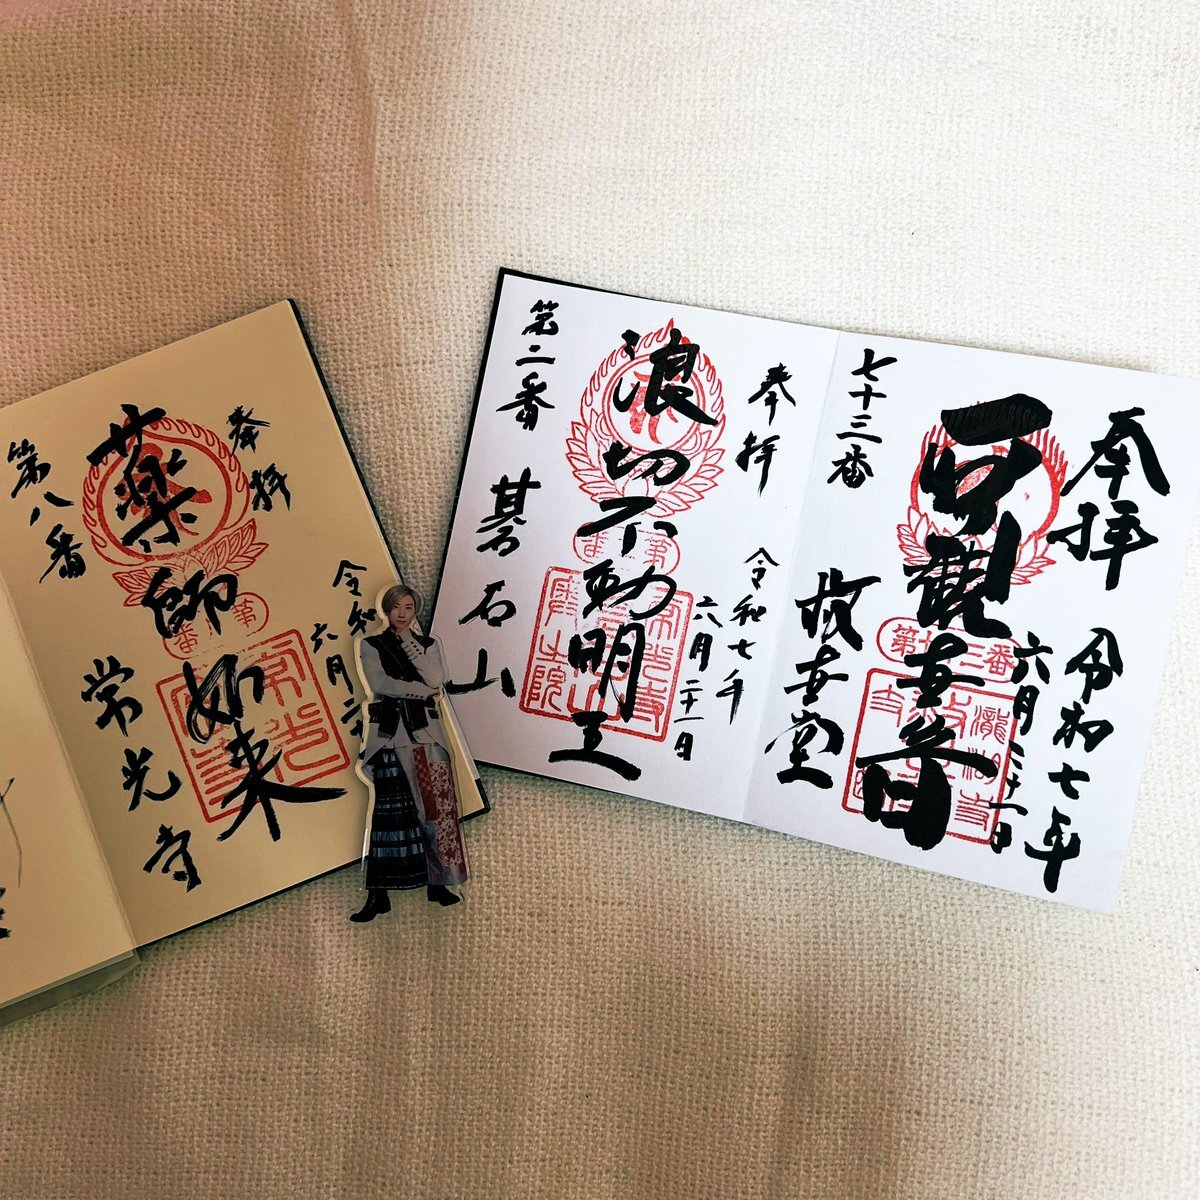 奉拝
令和七年
六月二十一日
観世音
七十三番
救世堂
奉拝
令和七年
六月二十一日
浪切不動明王
第二番
碁石山
奉拝
令和
六月二十
薬師如来
第八番
常光寺